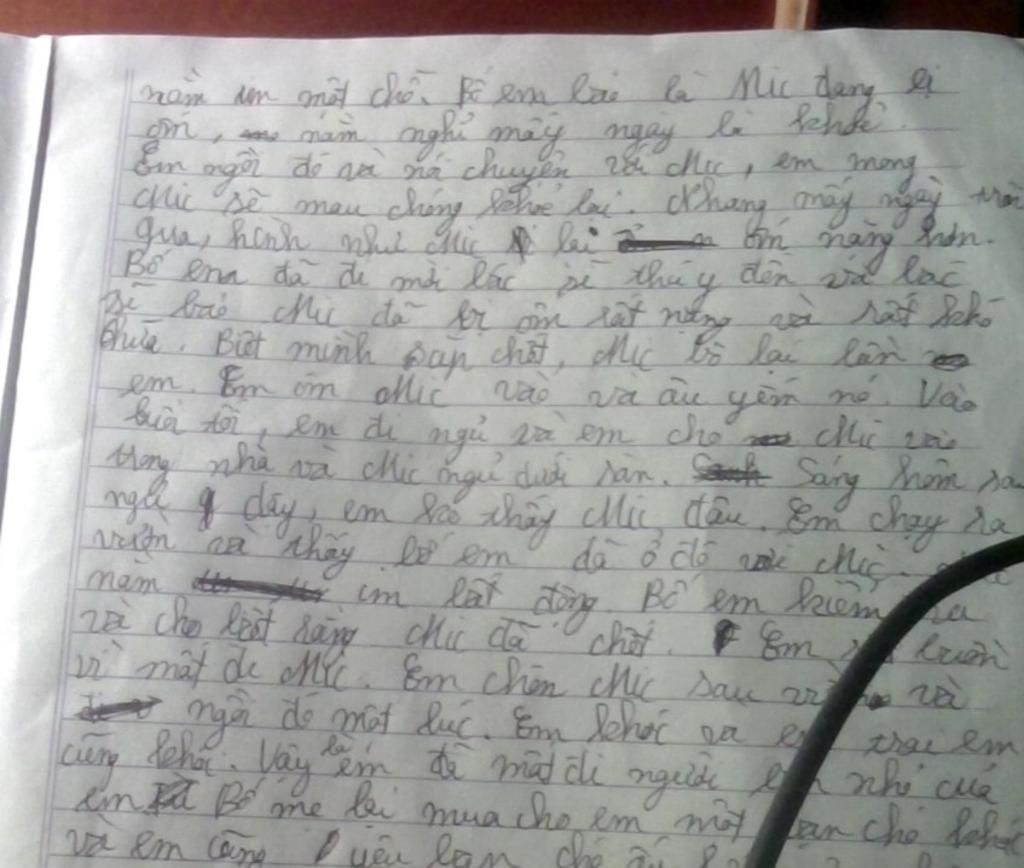 nằm im một chỗ. Bố em bảo là Mic đang bị
ốm, nằm nghỉ mấy ngày là khỏe.
Em ngồi đó và nói chuyện với Mic, em mong
Mic sẽ mau chóng khỏe lại. Nhưng mấy ngày trôi
qua, hình như Mic lại ốm nặng hơn.
Bố em đã đi mời bác sĩ thú y đến và bác
sĩ bảo Mic đã bị ốm rất nặng và rất khó
chữa. Biết mình sắp chết, Mic bò lại lần
em. Em ôm Mic vào và âu yếm nó. Vào
buổi tối, em đi ngủ và em cho Mic vào
trong nhà và Mic ngủ dưới sàn. Sáng hôm sau
ngủ dậy, em ko thấy Mic đâu. Em chạy ra
vườn và thấy bố em đã ở đó với Mic.
nằm im bất động. Bố em kiểm tra
và cho biết rằng Mic đã chết. Em buồn
vì mất đi Mic. Em chôn Mic sau và
ngồi đó một lúc. Em khóc và trai em
cũng khóc. Vậy là em đã mất đi người nhỏ của
em Bố mẹ lại mua cho em một chó khác
và em cũng yêu bạn chó ấy